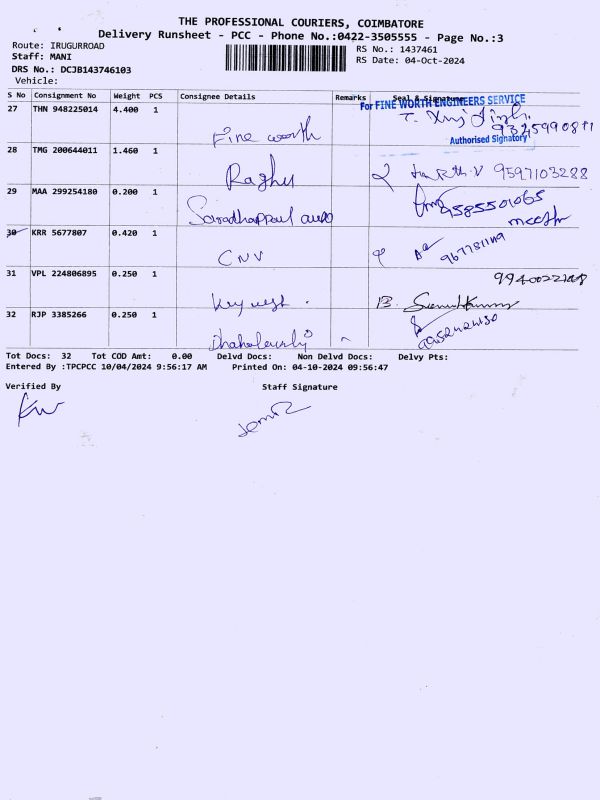 THE PROFESSIONAL COURIERS, COIMBATORE
Delivery Runsheet - PCC - Phone No.:0422-3505555 - Page No.:3
Route: IRUGURROAD
Staff: MANI
DRS No.: DCJB143746103
Vehicle:
RS No.: 1437461
RS Date: 04-Oct-2024
S No Consignment No Weight PCS Consignee Details Remarks Seal & Signature
For FINE WORTH ENGINEERS SERVICE
27 THN 948225014 4.400 1 Fine worth
Authorised Signatory
28 TMG 200644011 1.460 1 Raghu 9597103288
29 MAA 299254180 0.200 1 9585501065
30 KRR 5677807 0.420 1 CNV
31 VPL 224806895 0.250 1
32 RJP 3385266 0.250 1
Tot Docs: 32 Tot COD Amt: 0.00 Delvd Docs: Non Delvd Docs: Delvy Pts:
Entered By :TPCPCC 10/04/2024 9:56:17 AM Printed On: 04-10-2024 09:56:47
Verified By Staff Signature